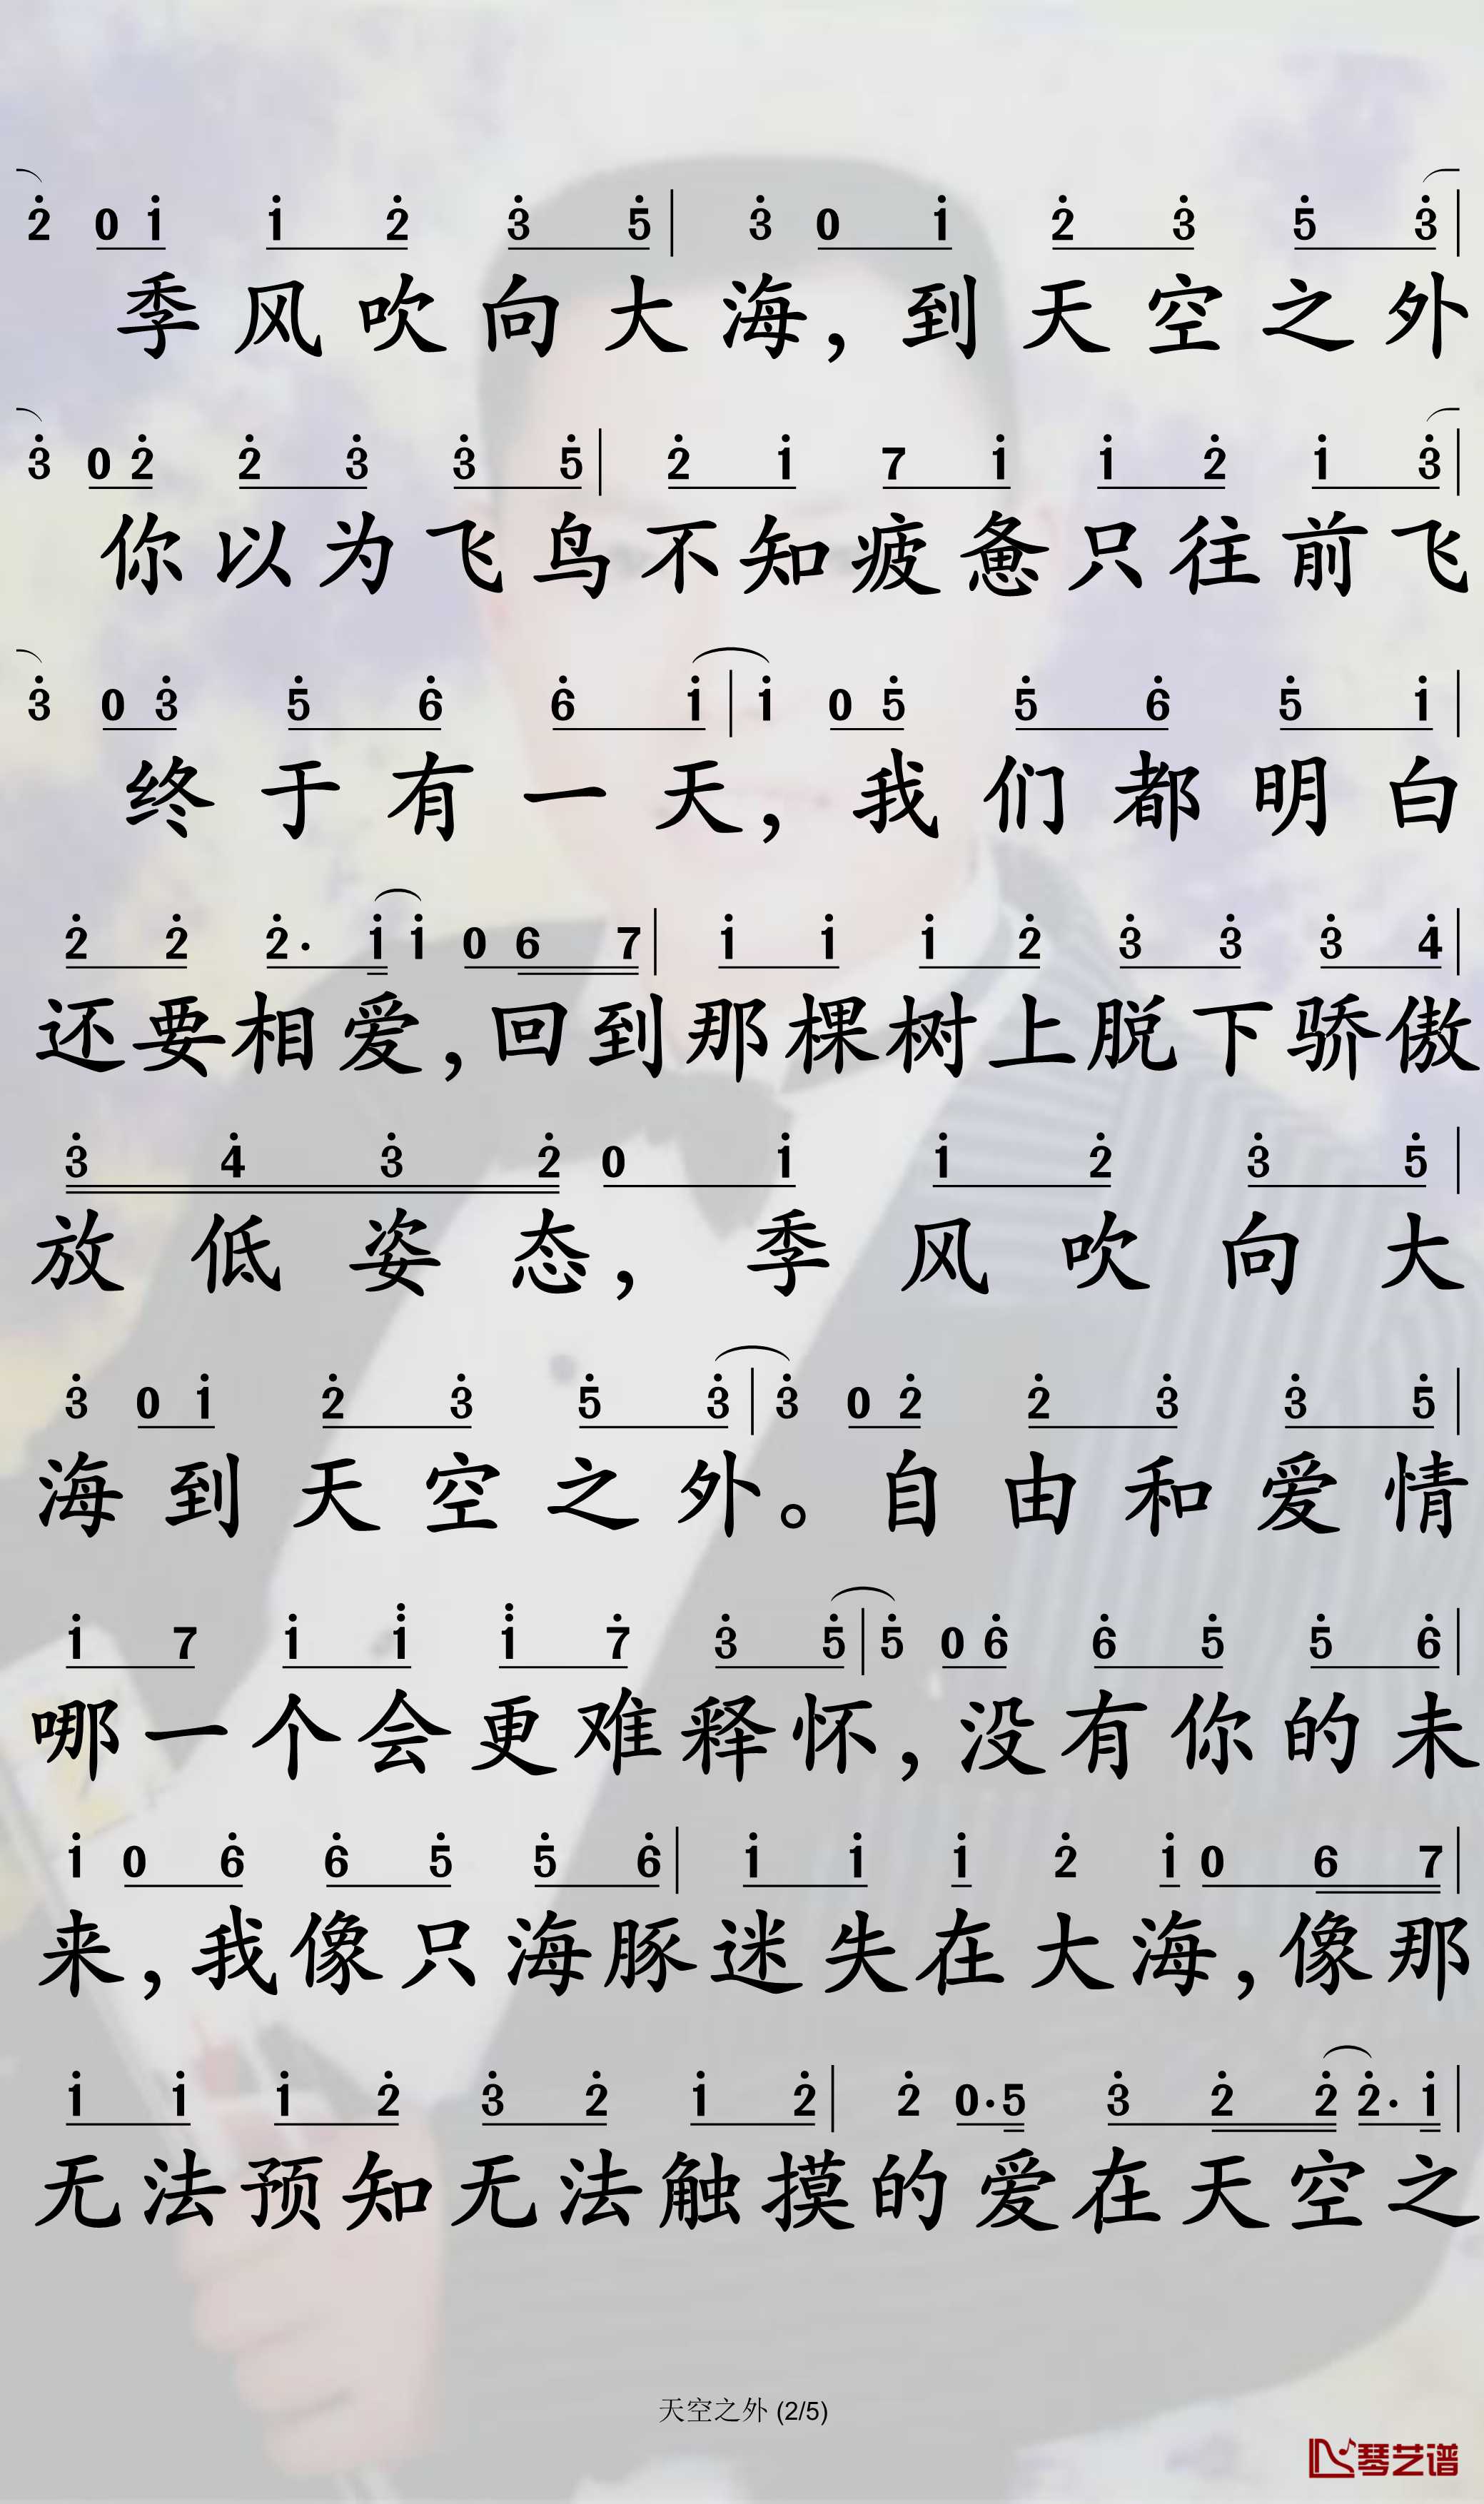 2̇ 0 1̇ 1̇ 2̇ 3̇ 5̇ | 3̇ 0 1̇ 2̇ 3̇ 5̇ 3̇ |
季风吹向大海，到天空之外
3̇ 0 2̇ 2̇ 3̇ 3̇ 5̇ | 2̇ 1̇ 7 1̇ 1̇ 2̇ 1̇ 3̇ |
你以为飞鸟不知疲惫只往前飞
3̇ 0 3̇ 5̇ 6̇ 6̇ 1̇ | 1̇ 0 5̇ 5̇ 6̇ 5̇ 1̇ |
终于有一天，我们都明白
2̇ 2̇ 2̇· 1̇ 1̇ 0 6 7 | 1̇ 1̇ 1̇ 2̇ 3̇ 3̇ 3̇ 4̇ |
还要相爱，回到那棵树上脱下骄傲
3̇ 4̇ 3̇ 2̇ 0 1̇ 1̇ 2̇ 3̇ 5̇ |
放低姿态，季风吹向大
3̇ 0 1̇ 2̇ 3̇ 5̇ 3̇ | 3̇ 0 2̇ 2̇ 3̇ 3̇ 5̇ |
海到天空之外。自由和爱情
1̇ 7 1̇ 1̈ 1̈ 7̇ 3̇ 5̇ | 5̇ 0 6̇ 6̇ 5̇ 5̇ 6̇ |
哪一个会更难释怀，没有你的未
1̇ 0 6̇ 6̇ 5̇ 5̇ 6̇ | 1̇ 1̇ 1̇ 2̇ 1̇ 0 6 7 |
来，我像只海豚迷失在大海，像那
1̇ 1̇ 1̇ 2̇ 3̇ 2̇ 1̇ 2̇ | 2̇ 0· 5 3̇ 2̇ 2̇ 2̇· 1̇ |
无法预知无法触摸的爱在天空之
天空之外 (2/5)
琴艺谱